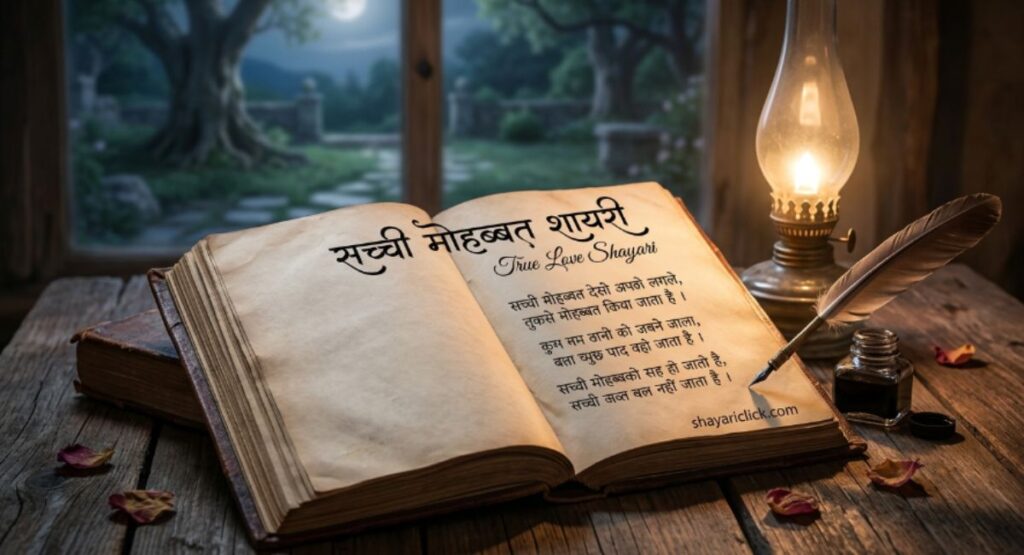 सच्ची मोहब्बत शायरी
True Love Shayari
सच्ची मोहब्बत देसो अपठो लगले,
तुकसे मोहब्बत किया जाता है ।
कुम नम ठानो को जबने जाला,
बता च्मुछ पाद वहो जाता है ।
सच्ची मोहब्बको सह हो जातो है,
सच्ची अव्त बल नहीं जाता है ।
shayariclick.com